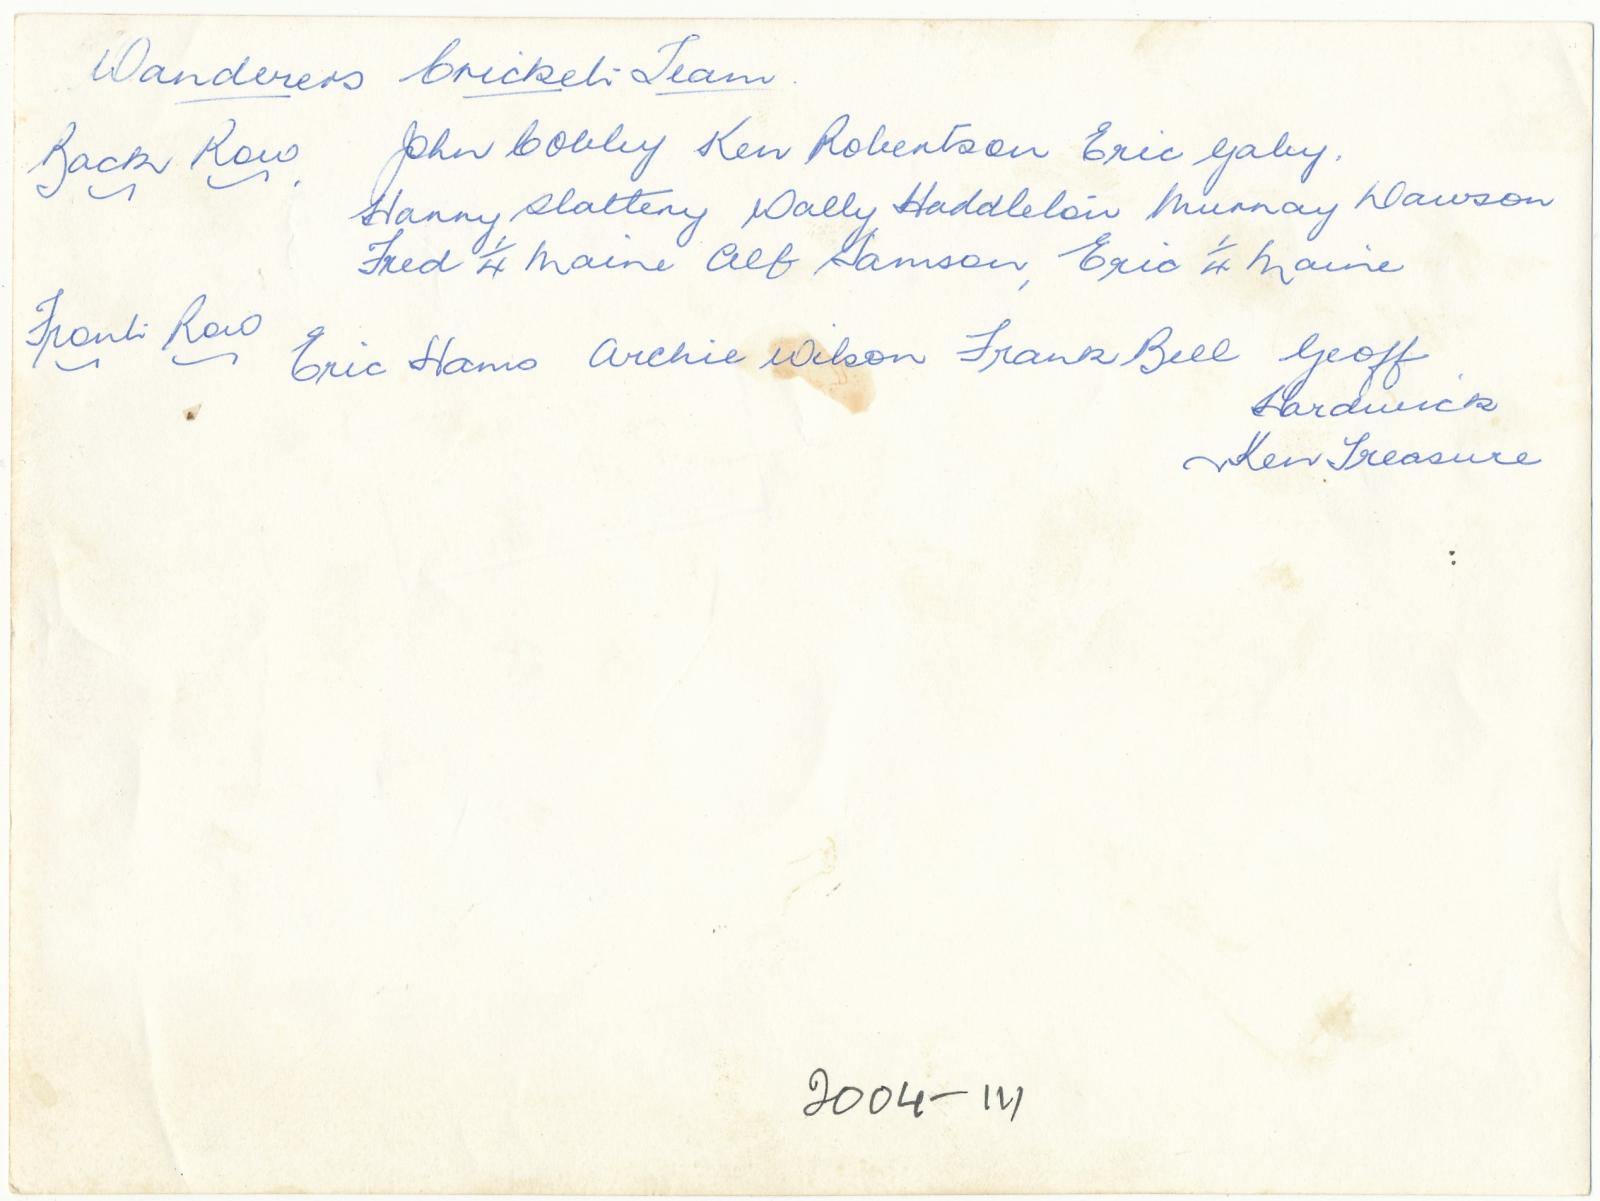 Wanderers Cricket Team.
Back Row. John Cobley Ken Robertson Eric Gaby.
Harry Slattery Wally Haddleton Murray Dawson
Fred ¼ Maine Alf Samson, Eric ¼ Maine
Front Row Eric Hams Archie Wilson Frank Bell Geoff
Hardwick
Ken Treasure